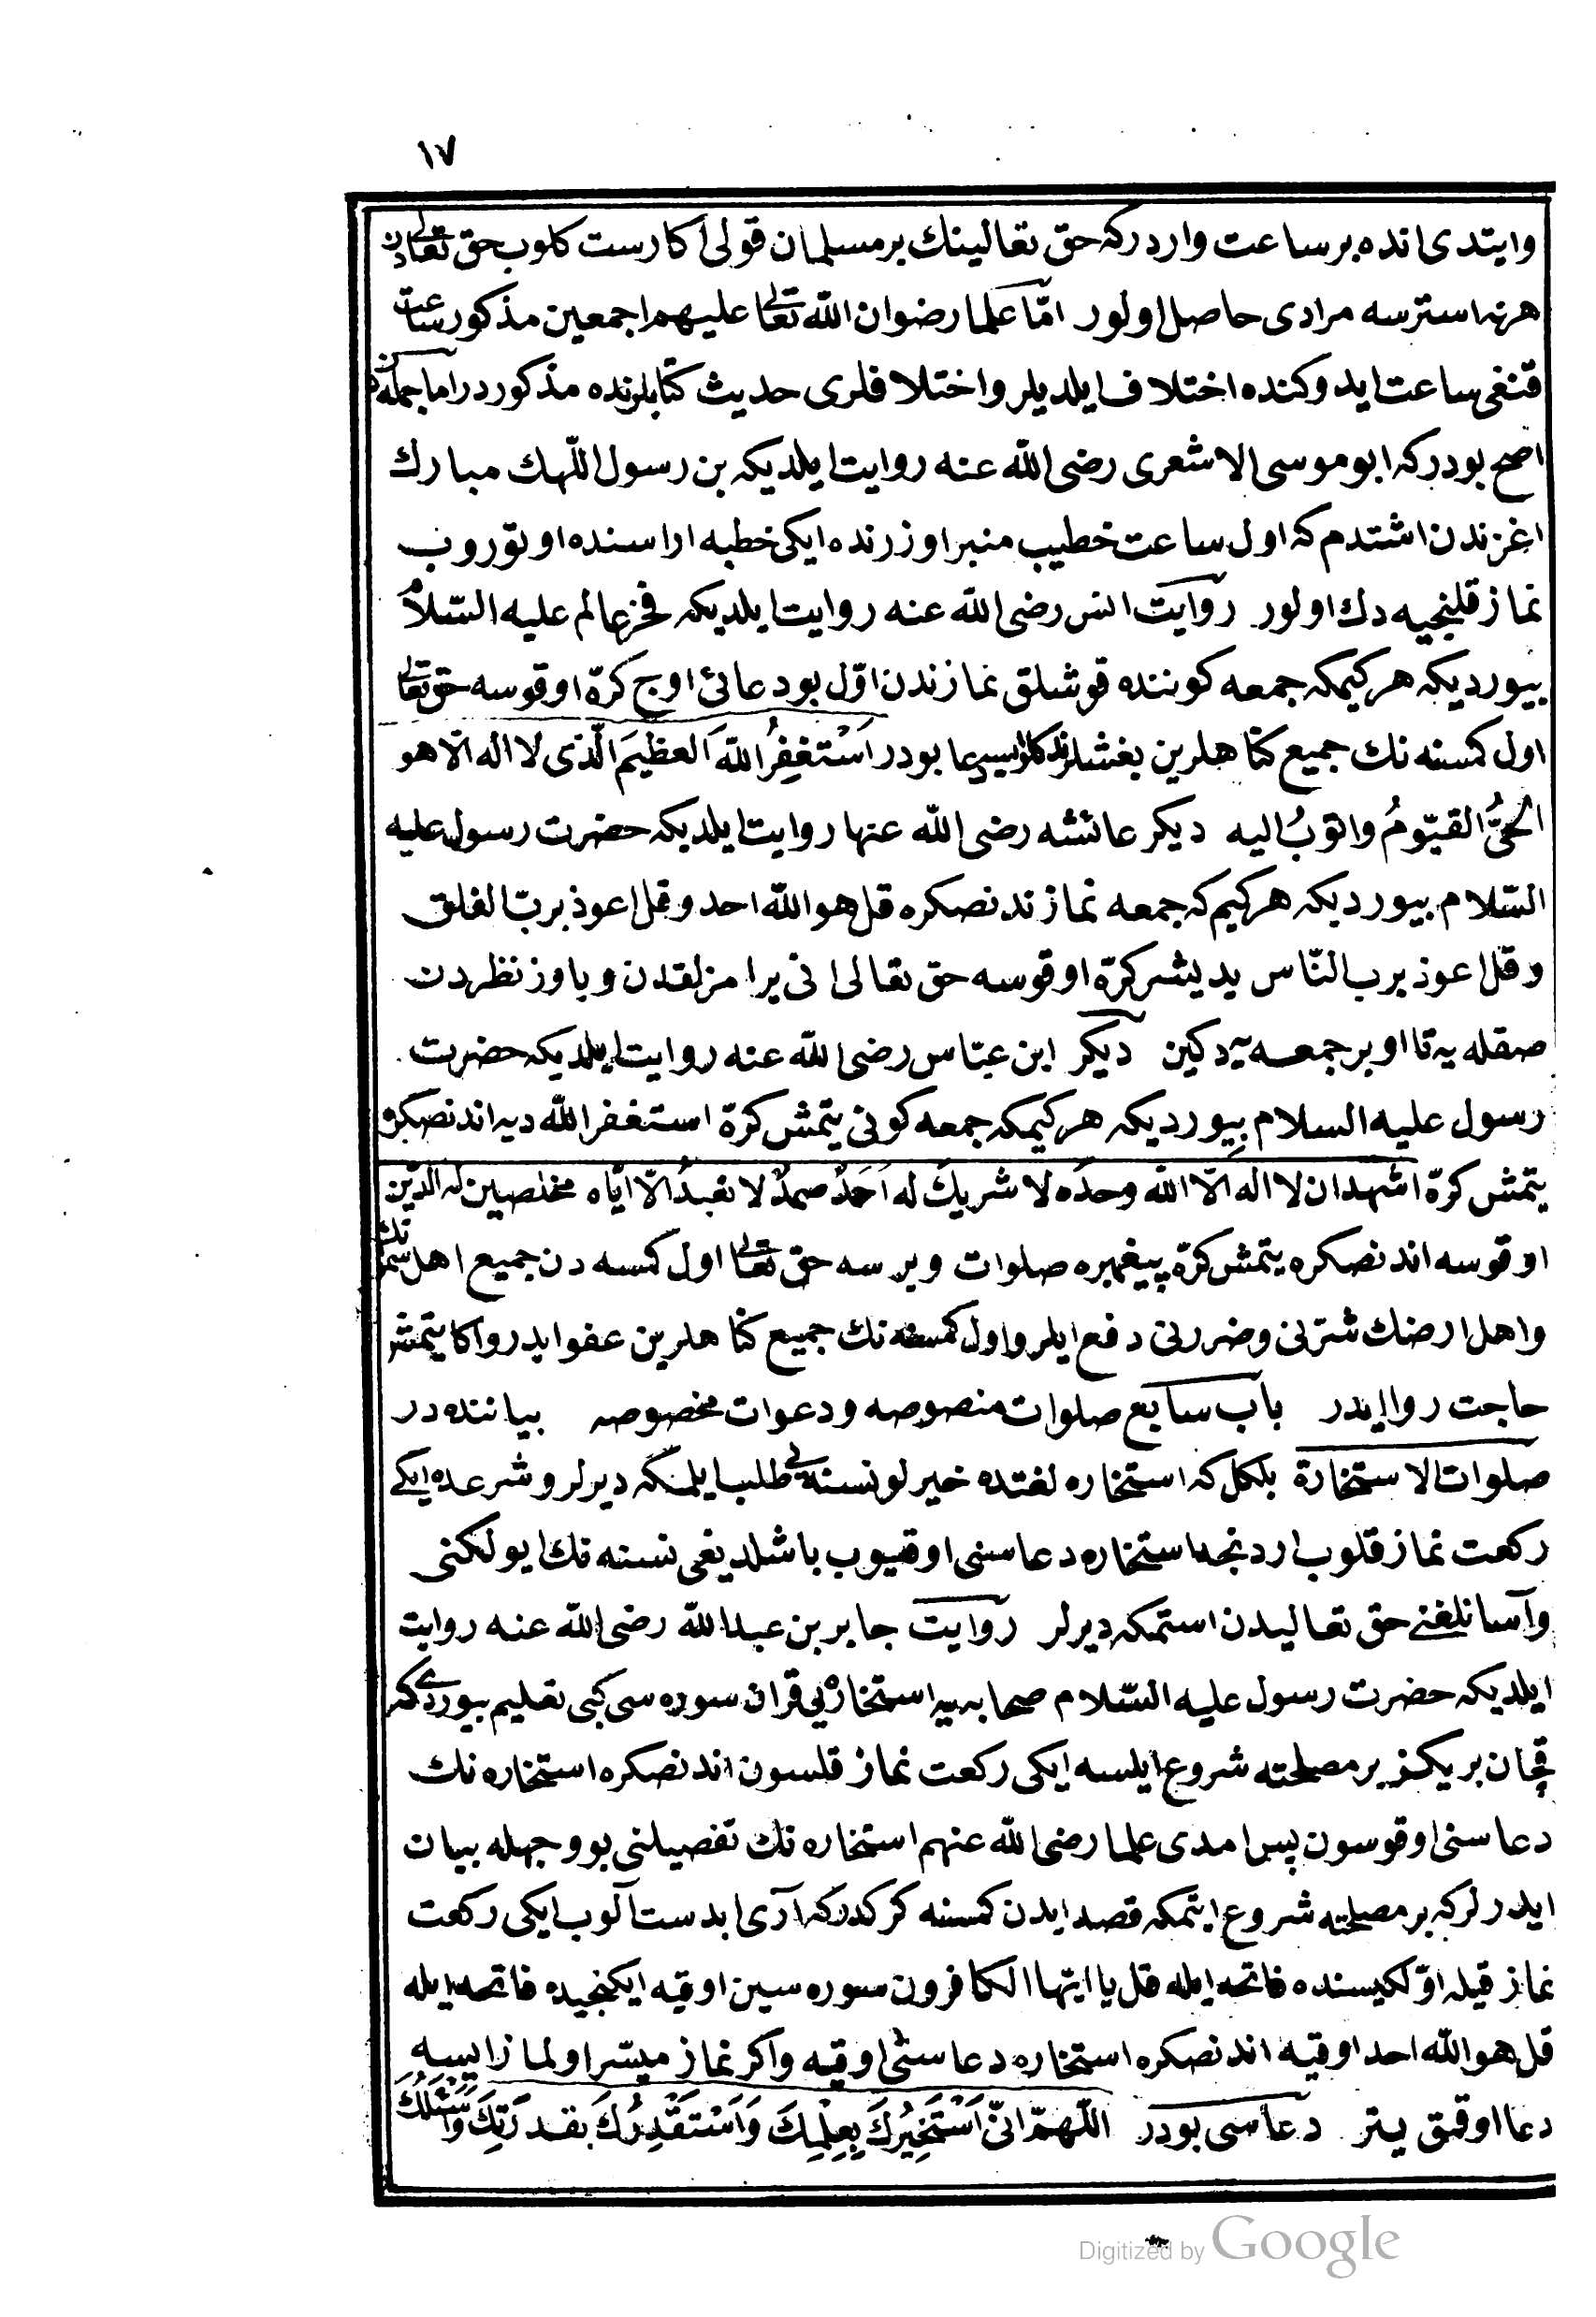 ١٧
وايتدى انده بر ساعت واردركه حق تعالينك بر مسلمان قولى اكا راست كلوب حق تعالادن
هر نه استرسه مرادى حاصل اولور امّا علما رضوان الله تعالى عليهم اجمعين مذكور ساعت
قنغى ساعت ايدوكنده اختلاف ايلديلر واختلافلرى حديث كتابلرنده مذكوردر اما جمله
اصح بودركه ابو موسى الاشعرى رضى الله عنه روايت ايلديكه بن رسول اللهك مبارك
اغزندن اشتدم كه اول ساعت خطيب منبر اوزرنده ايكى خطبه اراسنده اوتوروب
نماز قلنجيه دك اولور روايت انس رضى الله عنه روايت ايلديكه فخر عالم عليه السّلام
بيورديكه هر كيمكه جمعه كوننده قوشلق نمازندن اوّل بو دعائى اوج كرّه اوقوسه حق تعالى
اول كمسنه نك جميع كناهلرين بغشلر دعا بودر اَسْتَغفِرُ اللهَ العظيمَ الّذى لا اله الّا هو
الحىُّ القيّومُ واتوبُ اليه ديكر عائشه رضى الله عنها روايت ايلديكه حضرت رسول عليه
السّلام بيورديكه هر كيم كه جمعه نمازندنصكره قل هو الله احد وقل اعوذ بربّ الفلق
وقل اعوذ برب النّاس يديشر كرّه اوقوسه حق تعالى انى يرامزلقدن وياوز نظردن
صقليه تا اوبر جمعه يه دكين ديكر ابن عبّاس رضى الله عنه روايت ايلديكه حضرت
رسول عليه السلام بيورديكه هر كيمكه جمعه كونى يتمش كرّه استغفر الله ديه اندنصكره
يتمش كرّه اشهد ان لا اله الّا الله وحدَه لا شريكَ له اَحَدٌ صمدٌ لا نعبدُ الّا ايّاه مخلصين له الدّين
اوقوسه اندنصكره يتمش كرّه پيغمبره صلوات ويرسه حق تعالى اول كمسه دن جميع اهل سمانك
واهل ارضك شرّنى وضررنى دفع ايلر واول كمسنه نك جميع كناهلرين عفو ايدر واكا يتمش
حاجت روا ايدر باب سابع صلوات منصوصه ودعوات مخصوصه بياننده در
صلوات الاستخارة بلكل كه استخاره لغتده خيرلو نسنه يى طلب ايلمكه ديرلر وشرعده ايكى
ركعت نماز قلوب اردنجه استخاره دعاسنى اوقيوب باشلديغى نسنه نك ايولكنى
وآسانلغنى حق تعاليدن استمكه ديرلر روايت جابر بن عبد الله رضى الله عنه روايت
ايلديكه حضرت رسول عليه السّلام صحابه يه استخاره يى قران سوره سى كبى تعليم بيوردى كه
قچان بريكز بر مصلحته شروع ايلسه ايكى ركعت نماز قلسون اندنصكره استخاره نك
دعاسنى اوقوسون پس امدى علما رضى الله عنهم استخاره نك تفصيلنى بو وجهله بيان
ايدرلر كه بر مصلحته شروع ايتمكه قصد ايدن كمسنه كركدركه آرى ابدست آلوب ايكى ركعت
نماز قيله اوّلكيسنده فاتحه ايله قل يا ايّها الكافرون سوره سين اوقيه ايكنجيده فاتحه ايله
قل هو الله احد اوقيه اندنصكره استخاره دعاسنى اوقيه واكر نماز ميسّر اولمازايسه
دعا اوقمق يتر دعاسى بودر اللّهمّ انّى اَسْتَخِيرُكَ بِعِلْمِكَ وَاَسْتَقْدِرُكَ بقدرَتِكَ وَاَسْئَلُكَ
Digitized by Google